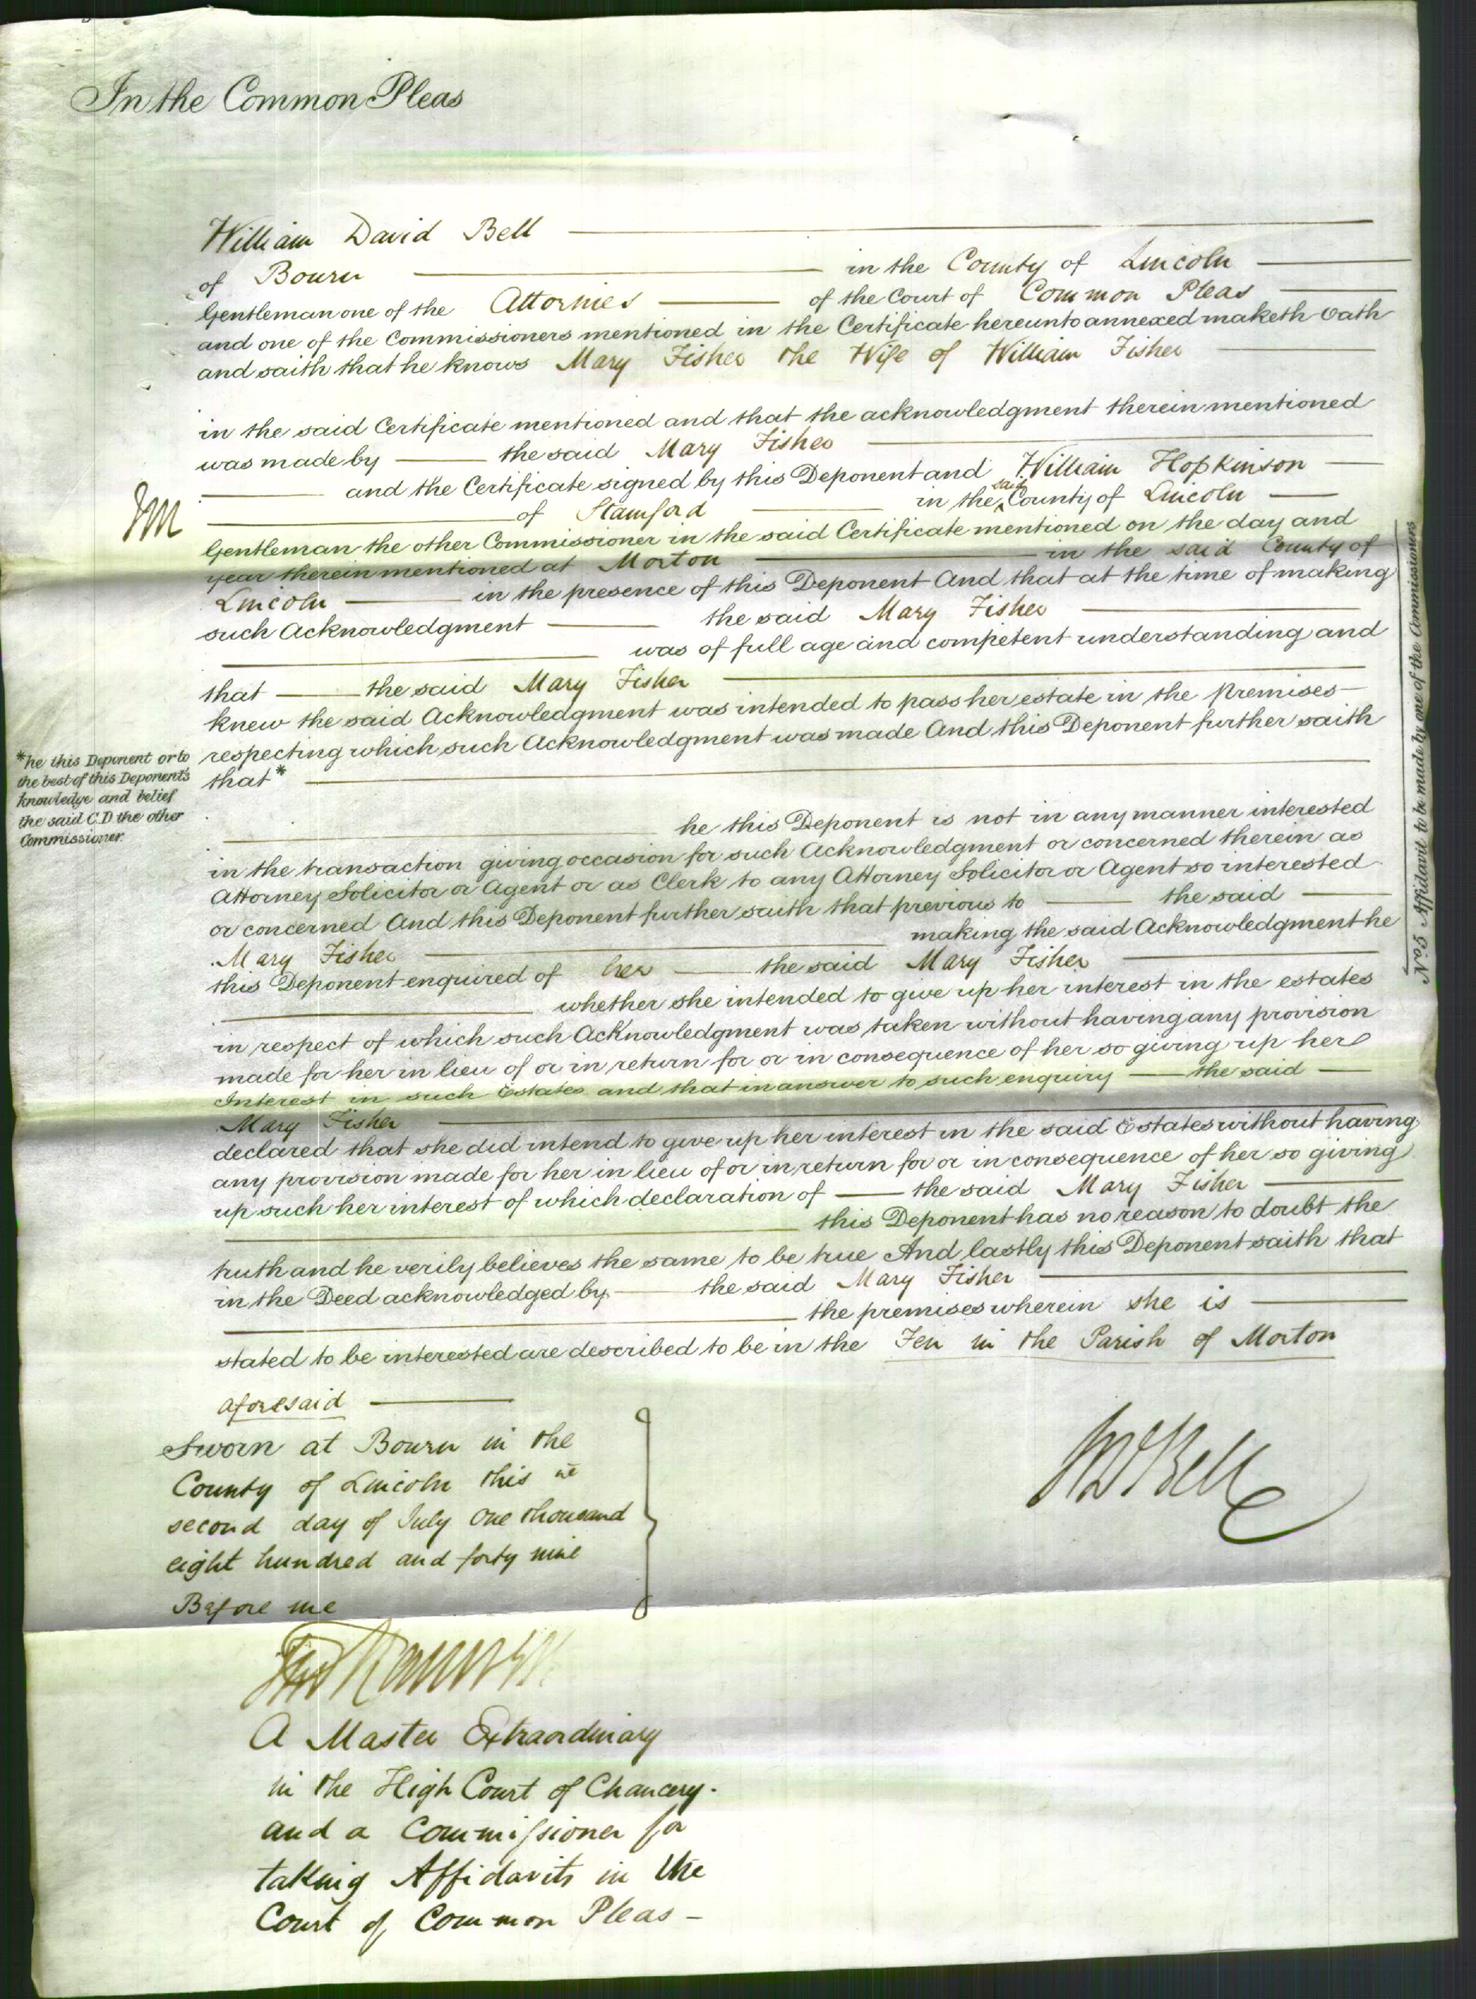 In the Common Pleas
William David Bell
of Bourn in the County of Lincoln
Gentleman one of the Attornies of the Court of Common Pleas
and one of the Commissioners mentioned in the Certificate hereunto annexed maketh Oath
and saith that he knows Mary Fisher the Wife of William Fisher
in the said Certificate mentioned and that the acknowledgment therein mentioned
was made by the said Mary Fisher
and the Certificate signed by this Deponent and William Hopkinson
of Stamford in the said County of Lincoln
Gentleman the other Commissioner in the said Certificate mentioned on the day and
year therein mentioned at Morton in the said County of
Lincoln in the presence of this Deponent And that at the time of making
such Acknowledgment the said Mary Fisher
was of full age and competent understanding and
that the said Mary Fisher
knew the said Acknowledgment was intended to pass her estate in the Premises
respecting which such Acknowledgment was made And this Deponent further saith
that*
*he this Deponent or to
the best of this Deponent's
knowledge and belief
the said C.D the other
Commissioner
he this Deponent is not in any manner interested
in the transaction giving occasion for such Acknowledgment or concerned therein as
Attorney Solicitor or Agent or as Clerk to any Attorney Solicitor or Agent so interested
or concerned And this Deponent further saith that previous to the said
Mary Fisher making the said Acknowledgment he
this Deponent enquired of her the said Mary Fisher
whether she intended to give up her interest in the estates
in respect of which such Acknowledgment was taken without having any provision
made for her in lieu of or in return for or in consequence of her so giving up her
Interest in such Estates and that in answer to such enquiry the said
Mary Fisher
declared that she did intend to give up her interest in the said Estates without having
any provision made for her in lieu of or in return for or in consequence of her so giving
up such her interest of which declaration of the said Mary Fisher
this Deponent has no reason to doubt the
truth and he verily believes the same to be true And lastly this Deponent saith that
in the Deed acknowledged by the said Mary Fisher
the premises wherein she is
stated to be interested are described to be in the Fen in the Parish of Morton
aforesaid
Sworn at Bourn in the
County of Lincoln this
second day of July One thousand
eight hundred and forty nine
Before me
WD Bell
A Master Extraordinary
in the High Court of Chancery.
and a Commissioner for
taking Affidavits in the
Court of Common Pleas -
No. 5 Affidavit to be made by one of the Commissioners